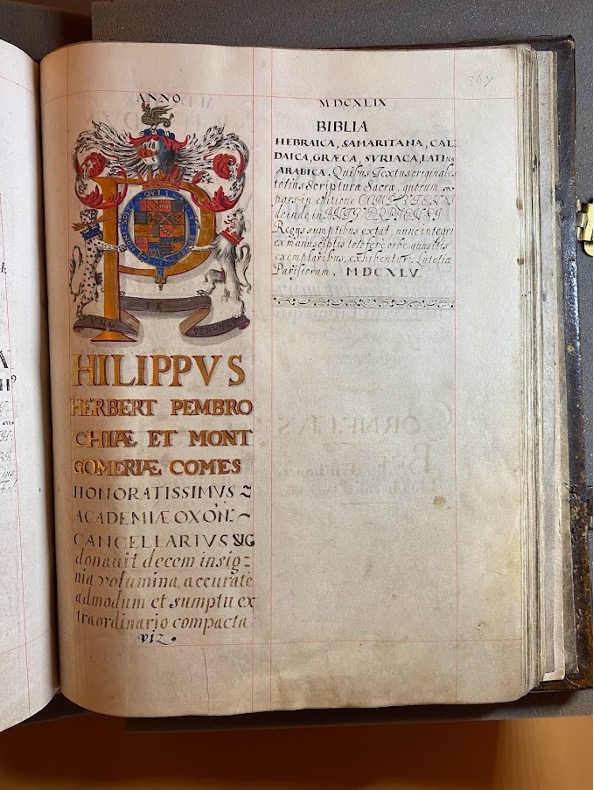 ANNO
MDCXLIX
PHILIPPVS
HERBERT PEMBRO
CHIÆ ET MONT
GOMERIÆ COMES
HONORATISSIMVS
ACADEMIÆ OXON:
CANCELLARIVS
donauit decem insig=
nia volumina, accuratè
admodum et sumptu ex
traordinario compacta
viz.
BIBLIA
HEBRAICA, SAMARITANA, CAL
DAICA, GRÆCA, SYRIACA, LATINA
ARABICA. Quibus Textus originales
totius Scripturæ Sacræ, quorum
pars in editione COMPLUTENSI
deinde in ANTVERPIENSI
Regijs sumptibus extat, nunc integri
ex manuscriptis toto fere orbe quæsitis
exemplaribus, exhibentur. Lutetiæ
Parisiorum. MDCXLV.